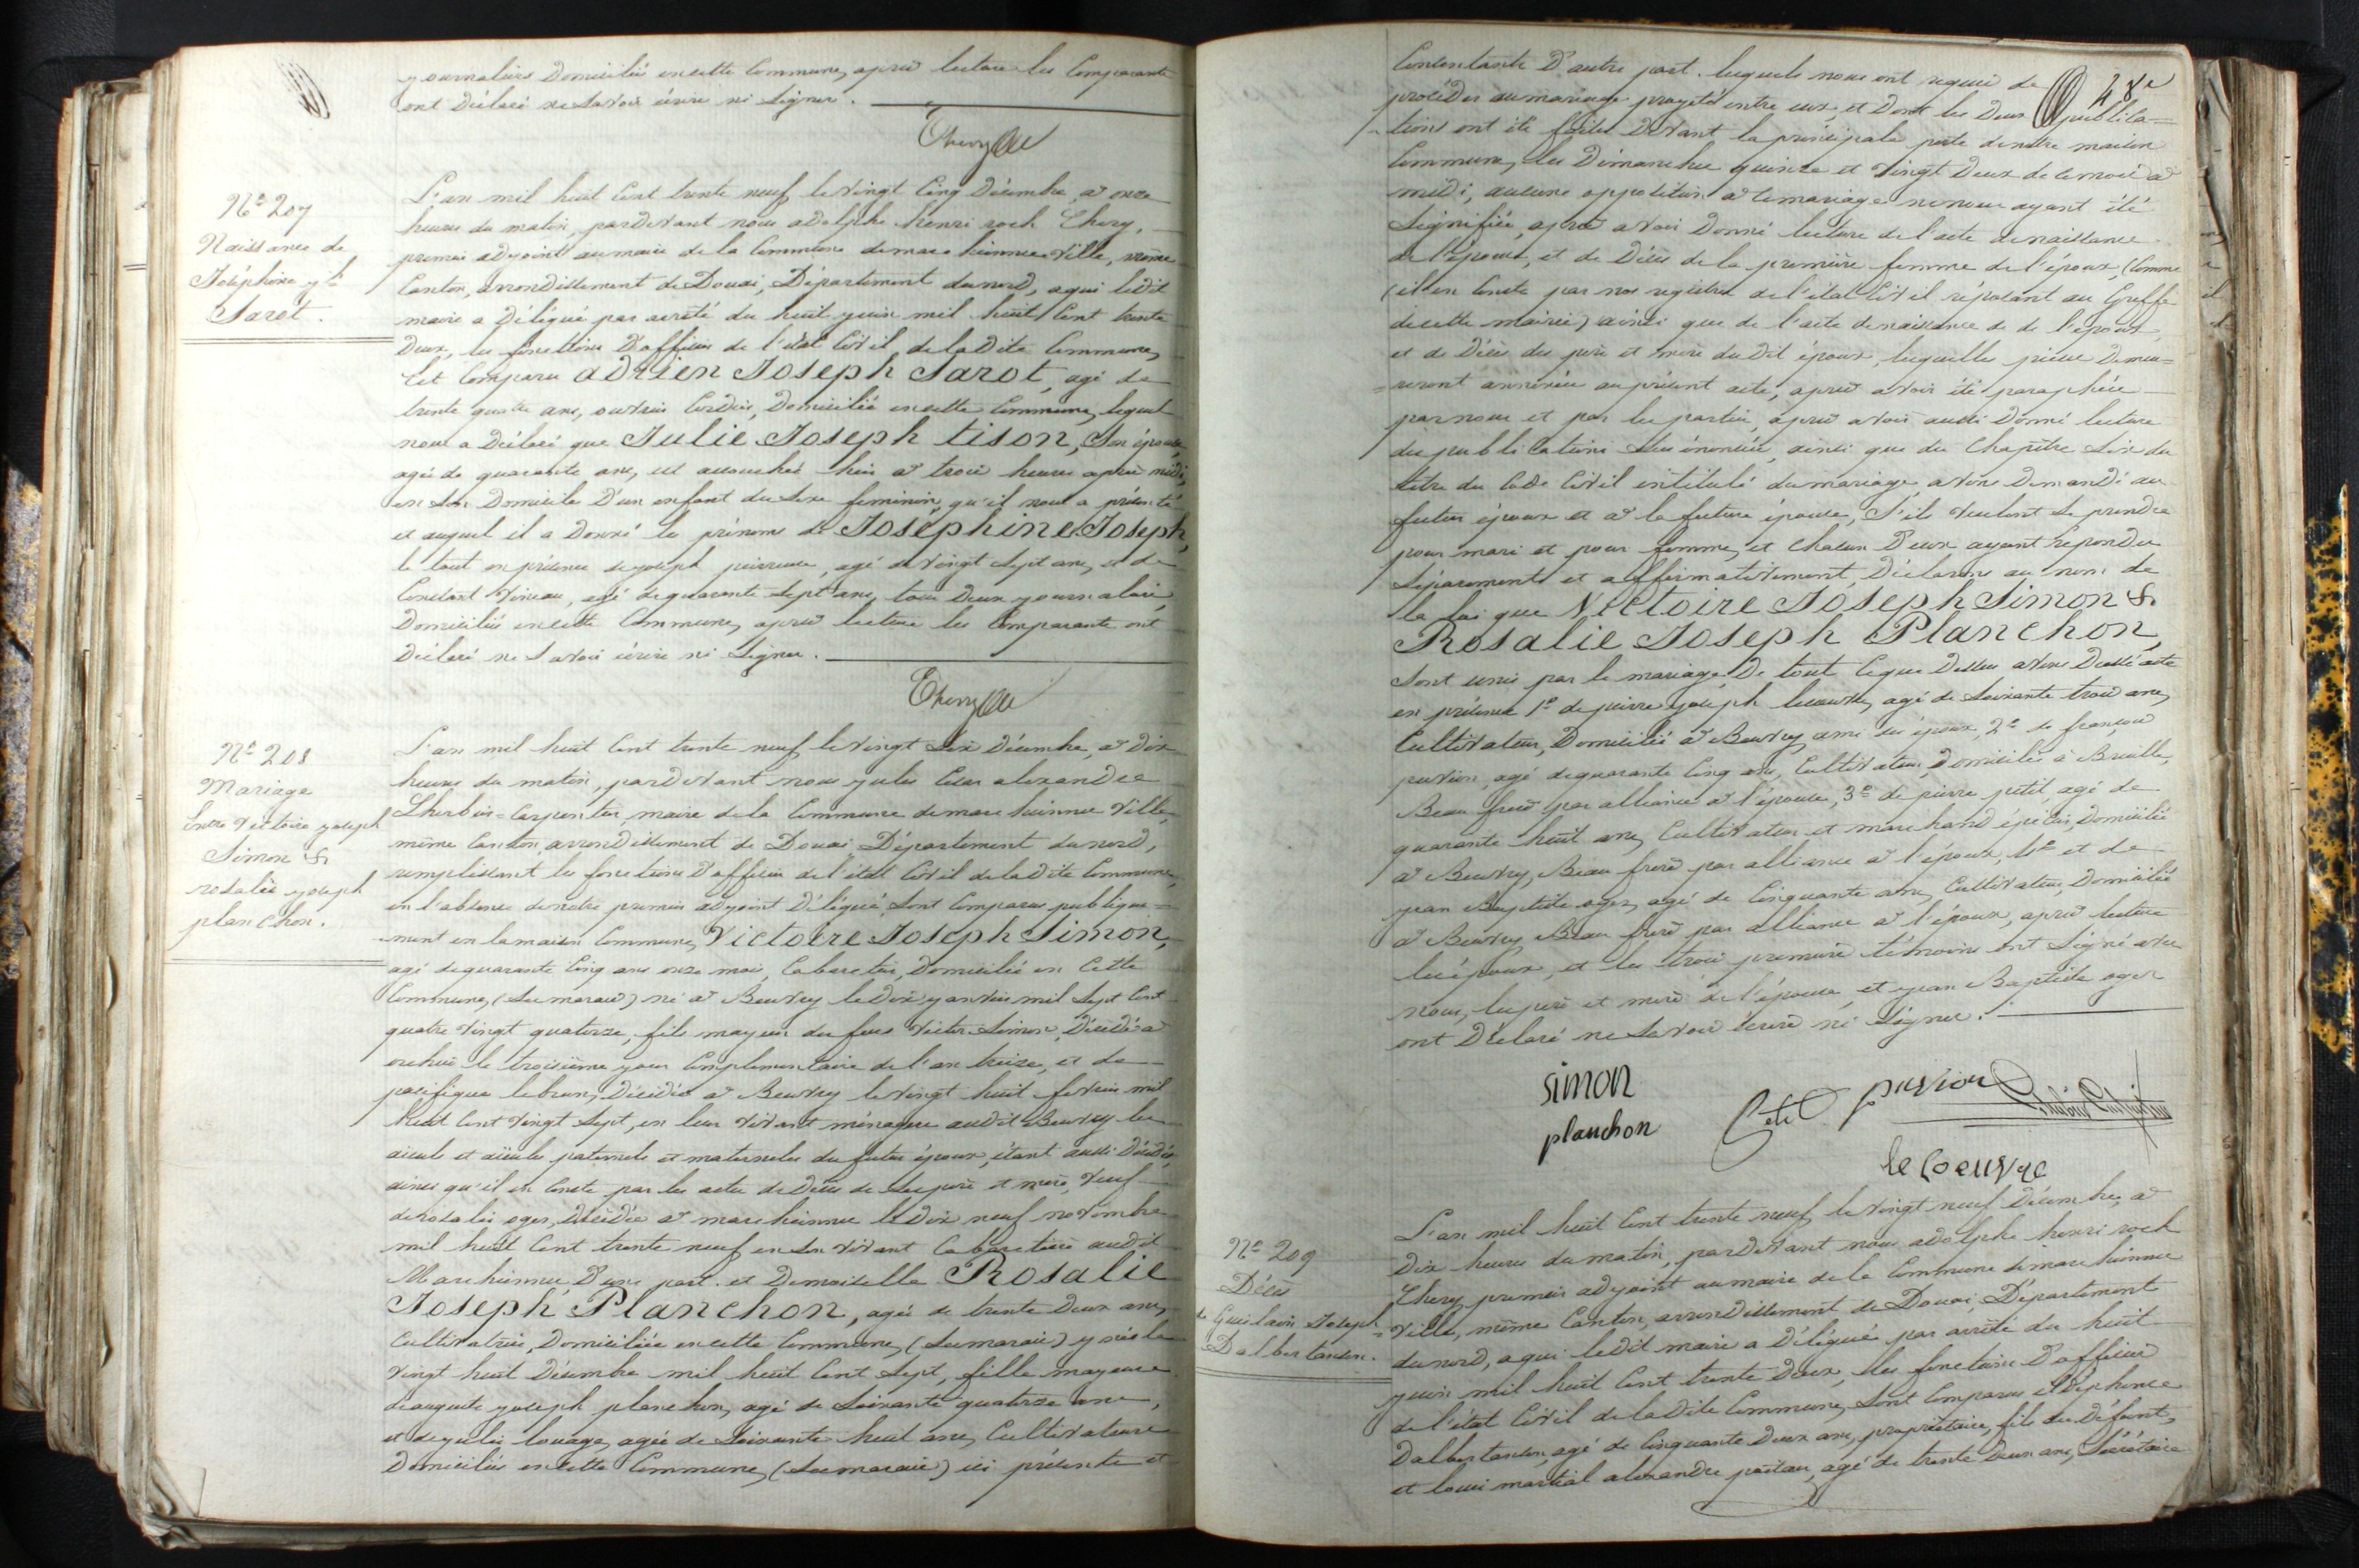 journaliers Domiciliés en cette Commune, après lecture les Comparants
ont Déclaré ne Savoir écrire ni Signer.
Chery
Nº 207
Naissance de
Joséphine jh
Sarot.
L'an mil huit Cent trente neuf, le vingt Cinq Décembre, à onze
heures du matin, pardevant nous adolphe henri roch Chery,
premier adjoint au maire de la Commune de marchiennes Ville, même
Canton, arrondissement de Douai, Département du nord, a qui ledit
maire a Délégué par arrêté du huit juin mil huit Cent trente
Deux, les fonctions D'officier de l'état Civil de la Dite Commune,
Est Comparu adrien Joseph Sarot, agé de
trente quatre ans, ouvrier Cordier, Domicilié en cette Commune, lequel
nous a Déclaré que Julie Joseph tison, Son épouse,
agée de quarante ans, est accouchée hier à trois heures après midi,
en Son Domicile D'un enfant du Sexe feminin, qu'il nous a présenté
et auquel il a Donné les prénoms de Joséphine Joseph,
le tout en présence de joseph , agé de vingt Sept ans, et de
Constant , agé de quarante Sept ans, tous Deux journaliers,
Domiciliés en cette Commune, après lecture les Comparants ont
Déclaré ne Savoir écrire ni Signer.
Chery
Nº 208
Mariage
Entre Victoire joseph
Simon &
rosalie joseph
planchon.
L'an mil huit Cent trente neuf, le vingt Six Décembre, à Dix
heures du matin, pardevant nous jules Cesar alexandre
Lherbier=Carpentier, maire de la Commune de marchiennes Ville,
même Canton, arrondissement de Douai Département du nord,
remplissant les fonctions D'officier de l'état Civil de la Dite Commune,
en l'absence de notre premier adjoint Délégué, Sont Comparus publique=
=ment en la maison Commune, Victoire Joseph Simon,
agé de quarante Cinq ans onze mois, Cabaretier, Domicilié en Cette
Commune, (Les marais) né à Beuvry le Dix janvier mil Sept Cent
quatre Vingt quatorze, fils majeur de feus Victor Simon, Décédé à
orchies le troisième jour Complementaire de l'an treize, et de
pacifique lebrun, Décédée à Beuvry le Vingt huit fevrier mil
huit Cent Vingt Sept, en leur Vivant ménagers audit Beuvry les
aieuls et aieules paternels et maternels du futur époux, étant aussi Décédés,
ainsi qu'il en Conste par les actes de Décès de Ses père et mère, Veuf
de rosalie oger, Décédée à marchiennes le Dix neuf novembre
mil huit Cent trente neuf en Son Vivant Cabaretière audit
Marchiennes, D'une part. et Demoiselle Rosalie
Joseph Planchon, agée de trente Deux ans,
Cultivatrice, Domiciliée en cette Commune, (Les marais) y née le
Vingt huit Décembre mil huit Cent Sept, fille majeure
d'auguste joseph planchon, agé de Soixante quatorze ans,
et de julie louage, agée de Soixante huit ans, Cultivateurs
Domiciliés en cette Commune, (Les marais) ici présents et
48e
Consentants D'autre part. lesquels nous ont requis de
procéder au mariage projeté entre eux, et Dont les Deux publica=
=tions ont été faites Devant la principale porte de notre maison
Commune, les Dimanches quinze et Vingt Deux de ce mois à
midi, aucune opposition à ce mariage ne nous ayant été
Signifiée, après avoir Donné lecture de l'acte de naissance
de l'épouse, et de Décès de la première femme de l'époux, (Comme
il en Conste par nos registres de l'état Civil, réposant au Greffe
de cette mairie) ainsi que de l'acte de naissance de l'époux,
et de Décès des père et mère dudit époux, lesquelles pièces Demeu=
=reront annexées au présent acte, après avoir été paraphées
par nous et par les parties, après avoir aussi Donné lecture
des publications Sus énoncées, ainsi que du Chapître Six du
titre du Code Civil intitulé du mariage, avons Demandé au
futur époux et à la future épouse, S'ils Veulent Se prendre
pour mari et pour femme, et Chacun D'eux ayant repondu
Séparements et affirmativement, Déclarons au nom de
la loi que Victoire Joseph Simon &
Rosalie Joseph Planchon,
Sont unis par le mariage. De tout Ce que Dessus avons Dressé acte
en présence 1º de pierre joseph lecoeuvre, agé de Soixante trois ans,
Cultivateur, Domicilié à Beuvry, ami des époux, 2º de françois
puvion, agé de quarante Cinq ans, Cultivateur, Domicilié à Bruille,
Beau frère par alliance à l'épouse, 3º de pierre petit, agé de
quarante huit ans, Cultivateur et marchand épicier, Domicilié
à Beuvry, Beau frère par alliance à l'époux, 4º et de
jean Baptiste oger, agé de Cinquante ans, Cultivateur, Domicilié
à Beuvry, Beau frère par alliance à l'époux, après lecture
les époux, et les trois premiers témoins ont Signé avec
nous, les père et mère de l'épouse, et jean Baptiste oger
ont Déclaré ne Savoir écrire ni Signer.
simon
planchon
Petit puvion
le coeuvre
Nº 209
Décès
de Guislain Joseph
Dalbertanson.
L'an mil huit Cent trente neuf, le Vingt neuf Décembre, à
Dix heures du matin, pardevant nous adolphe henri roch
Chery, premier adjoint au maire de la Commune de marchiennes
Ville, même Canton, arrondissement de Douai, Département
du nord, a qui ledit maire a Délégué par arrêté du huit
juin mil huit Cent trente Deux, les fonctions D'officier
de l'état Civil de la Dite Commune, Sont Comparus
Dalbertanson, agé de Cinquante Deux ans, propriétaire, fils du Défunt,
et louis martial alexandre , agé de trente Deux ans, Sécrétaire